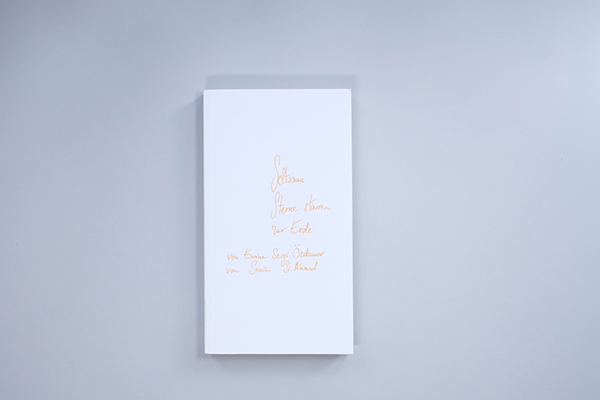 Seltsame
Sterne starren
zur Erde
von Emine Sevgi Özdamar
von Sonia